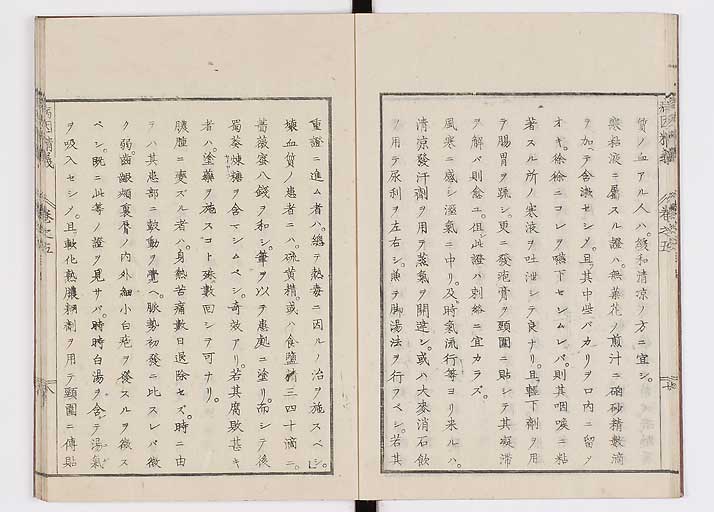 質ノ血アル人ハ。緩和清凉ノ方ニ宜シ。
寒粘液ニ屬スル證ハ。無菓花ノ煎汁ニ硇砂精數滴
ヲ加テ含漱セシノ。且其中些バカリヲ口内ニ留ノ
オキ。徐徐ニコレヲ嚥下セシムレバ。則其咽喉ニ粘
著スル所ノ寒液ヲ吐泄シテ良ナリ。且輕下劑ヲ用
テ腸胃ヲ疏シ。更ニ發疱膏ヲ頸圍ニ貼シテ其凝滯
ヲ解バ則愈ユ。但此證ハ刺絡ニ宜カラズ。
風寒ニ感シ溼氣ニ中リ。及時氣流行等ヨリ来ルハ。
清涼發汗劑ヲ用テ蒸氣ヲ開達シ。或ハ大麥消石飲
ヲ用テ尿利ヲ左右シ。兼テ脚湯法ヲ行フベシ。若其
重證ニ進ム者ハ。總テ熱毒ニ因ルノ治ヲ施スベシ。
壊血質ノ患者ニハ。硫黄精。或ハ食鹽精三四十滴ニ。
薔薇蜜八錢ヲ和シ。筆ヲ以テ患處ニ塗リ。而シテ後
蜀葵煉糖ヲ含マシムベシ。奇效アリ。若其腐敗甚キ
者ハ。塗藥ヲ施スコト殊數回シテ可ナリ。
膿腫ニ變ズル者ハ。身熱苦痛數日退除セズ。時ニ由
テハ其患部ニ鼓動ヲ覺ヘ。脈勢初發ニ比スレバ微
ク弱。齒齦頰裏脣ノ内外細小白疱ヲ發スルヲ徴ス
ベシ。既ニ此等ノ證ヲ見サバ。時時白湯ヲ含テ湯氣
ヲ吸入セシノ。且軟化熟膿糊劑ヲ用テ頸圍ニ傳貼
卷之五